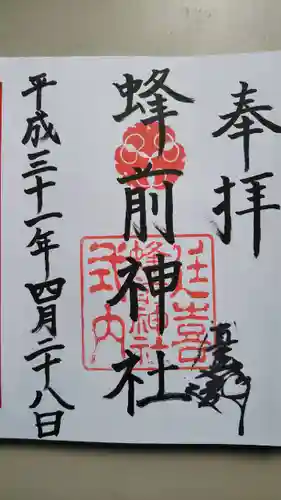 奉拝
蜂前神社
平成三十一年四月二十八日
式内
蜂前神社